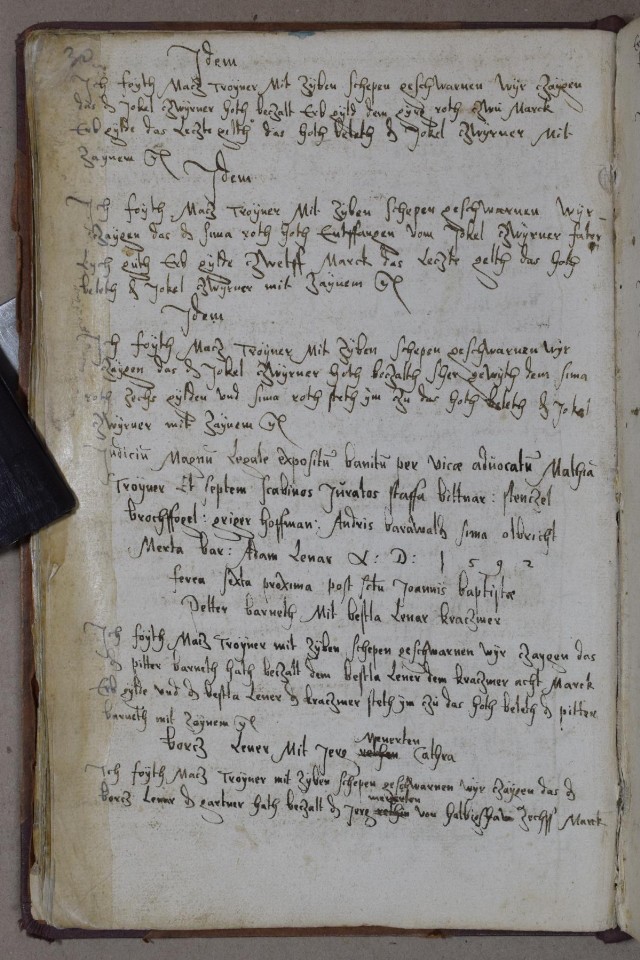 30
Idem
Ich foÿth Macz Troÿner Mit Zÿben schepen geschwarnen wÿr Czaygen
das d Jokel Zwÿrner hoth beczalt Erb gylde dem roth Zwu Marck
Erb gylde das Leczte gelth das hoth beleth d Jokel Zwÿrner Mit
Zaÿnem
Idem
Ich foÿth Macz Troÿner Mit Zÿben schepen geschwarnen wÿr
Czaygen das d sima roth hoth Entffangen Vom Jokel Zwÿrner
guth Erb gylde Zwelff Marck das Leczte gelth das hoth
beleth d Jokel Zwÿrner mit Zaÿnem
Idem
Ich foÿth Macz Troÿner Mit Zÿben schepen geschwarnen wÿr
Czaygen das d Jokel Zwÿrner hoth beczalth dem sima
roth Zechs gylden Vnd sima roth steth ÿm Zu das hoth beleth d Jokel
Zwÿrner mit Zaÿnem
Judiciu Magnu Legale expositu banitu per Vicae aduocatu Mathia
Troÿner Et septem scabinos Juratos staffa bittnar: stenczel
brochffogel: griger hoffman: Andris barawald sima olbricht
Merta bar: Adam Lenar A: D: 1592
ferea sexta proxima post sctu Joannis baptistae
Petter barneth Mit bestla Lenar kraczmer
Ich foÿth Macz Troÿner mit Zÿben schepen geschwarnen wÿr Czaygen das
d pitter barneth hath beczalt dem bestla Lener dem kraczmer acht Marck
Erb gylde Vnd d bestla Lener d kraczmer steth ÿm Czu das hoth beleth d pitter
barneth mit Zaÿnem
borcz Lener Mit Jerg Meuerten Cathra
Ich foÿth Macz Troÿner mit Zÿben schepen geschwarnen wÿr Czaÿgen das d
borcz Lener d gartner hath beczalt d Jerg meuerten von Zechff Marck